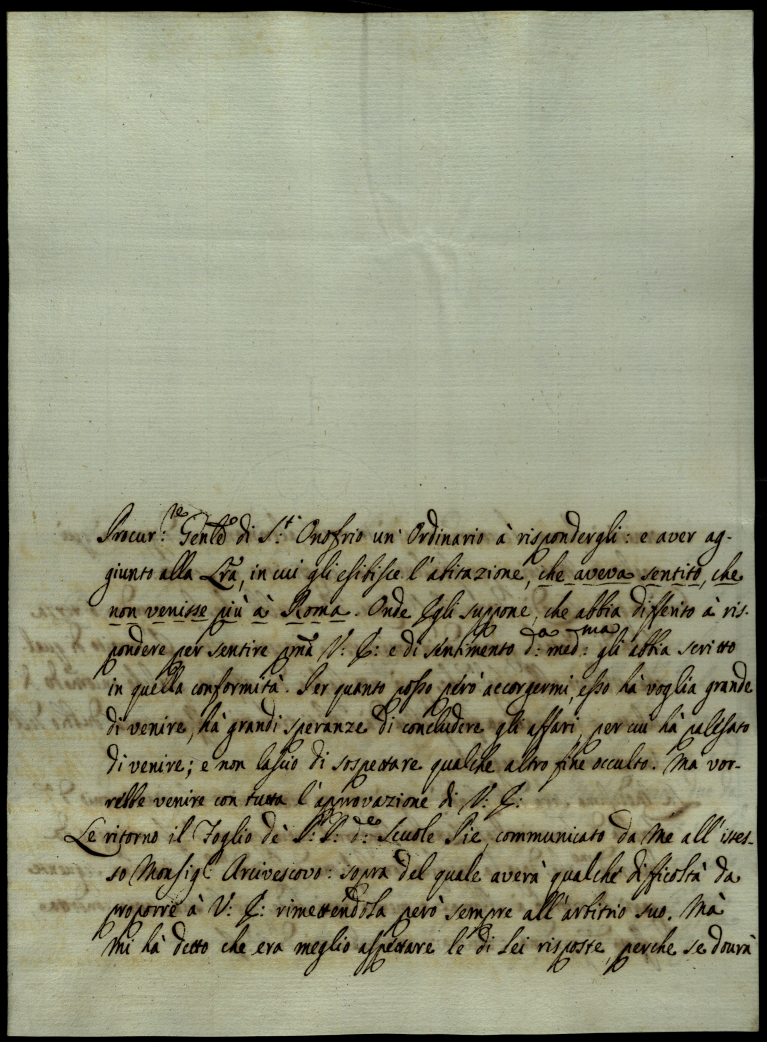 Procur:re Genle di S:t Onofrio un' Ordinario à rispondergli: e aver ag-
giunto alla Lrã, in cui gli esibisce l'abitazione, che aveva sentito, che
non venisse più à Roma. Onde Egli suppone, che abbia differito à ris-
pondere per sentire pmã V: E: e di sentimento d:a med:ma gli abbia scritto
in quella conformità. Per quanto posso però accorgermi, esso hà voglia grande
di venire, hà grandi speranze di concludere gli affari, per cui hà palesato
di venire; e non lascio di sospettare qualche altro fine occulto. Mà vor-
rebbe venire con tutta l'approvazione di V: E:
Le ritorno il Foglio de' P: P: d:e Scuole Pie, communicato da me all'istes-
so Monsig:r Arcivescovo: sopra del quale averà qualche difficoltà da
proporre à V: E: rimettendola però sempre all'arbitrio suo. Mà
mi hà detto che era meglio aspettare le di Lei risposte, perche se dourà